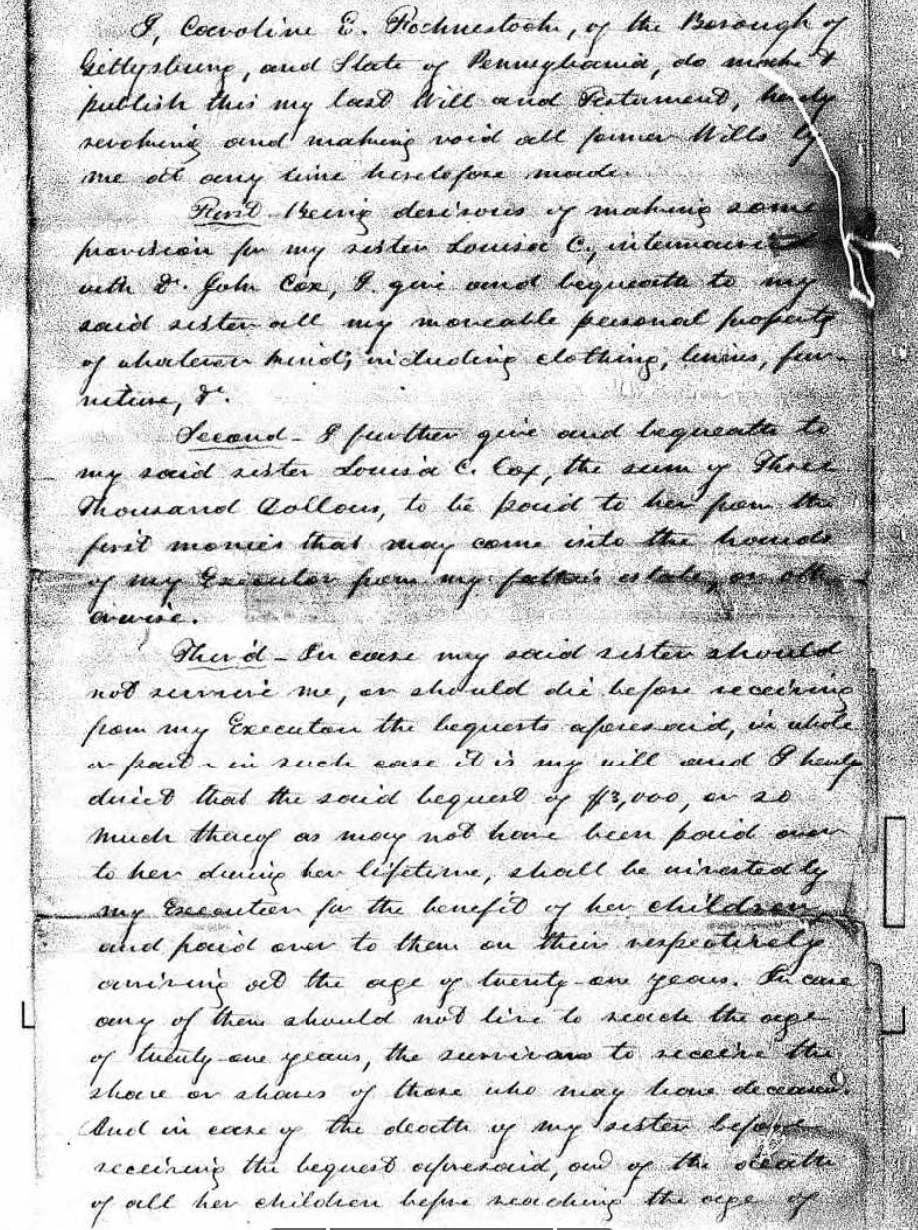 I, Caroline E. Fahnestock, of the Borough of
Gettysburg, and State of Pennsylvania, do make &
publish this my last Will and Testament, hereby
revoking and making void all former Wills by
me at any time heretofore made.
First - Being desirous of making some
provision for my sister Louisa C., intermarried
with Dr. John Cox, I give and bequeath to my
said sister all my moveable personal property
of whatever kind, including clothing, linens, fur-
niture, &c.
Second - I further give and bequeath to
my said sister Louisa C. Cox, the sum of Three
Thousand Dollars, to be paid to her from the
first monies that may come into the hands
of my Executor from my father's estate, or oth-
erwise.
Third - In case my said sister should
not survive me, or should die before receiving
from my Executor the bequests aforesaid, in whole
or part - in such case it is my will and I hereby
direct that the said bequest of $3,000, or so
much thereof as may not have been paid over
to her during her lifetime, shall be invested by
my Executor for the benefit of her children,
and paid over to them on their respectively
arriving at the age of twenty-one years. In case
any of them should not live to reach the age
of twenty-one years, the survivors to receive the
share or shares of those who may have deceased.
And in case of the death of my sister before
receiving the bequest aforesaid, and of the death
of all her children before reaching the age of